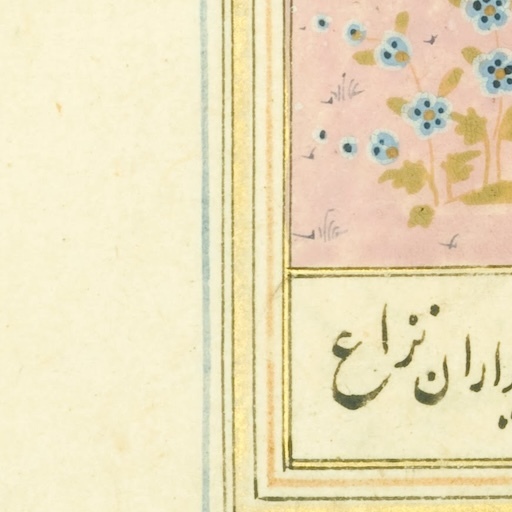 ‌یاران نزاع